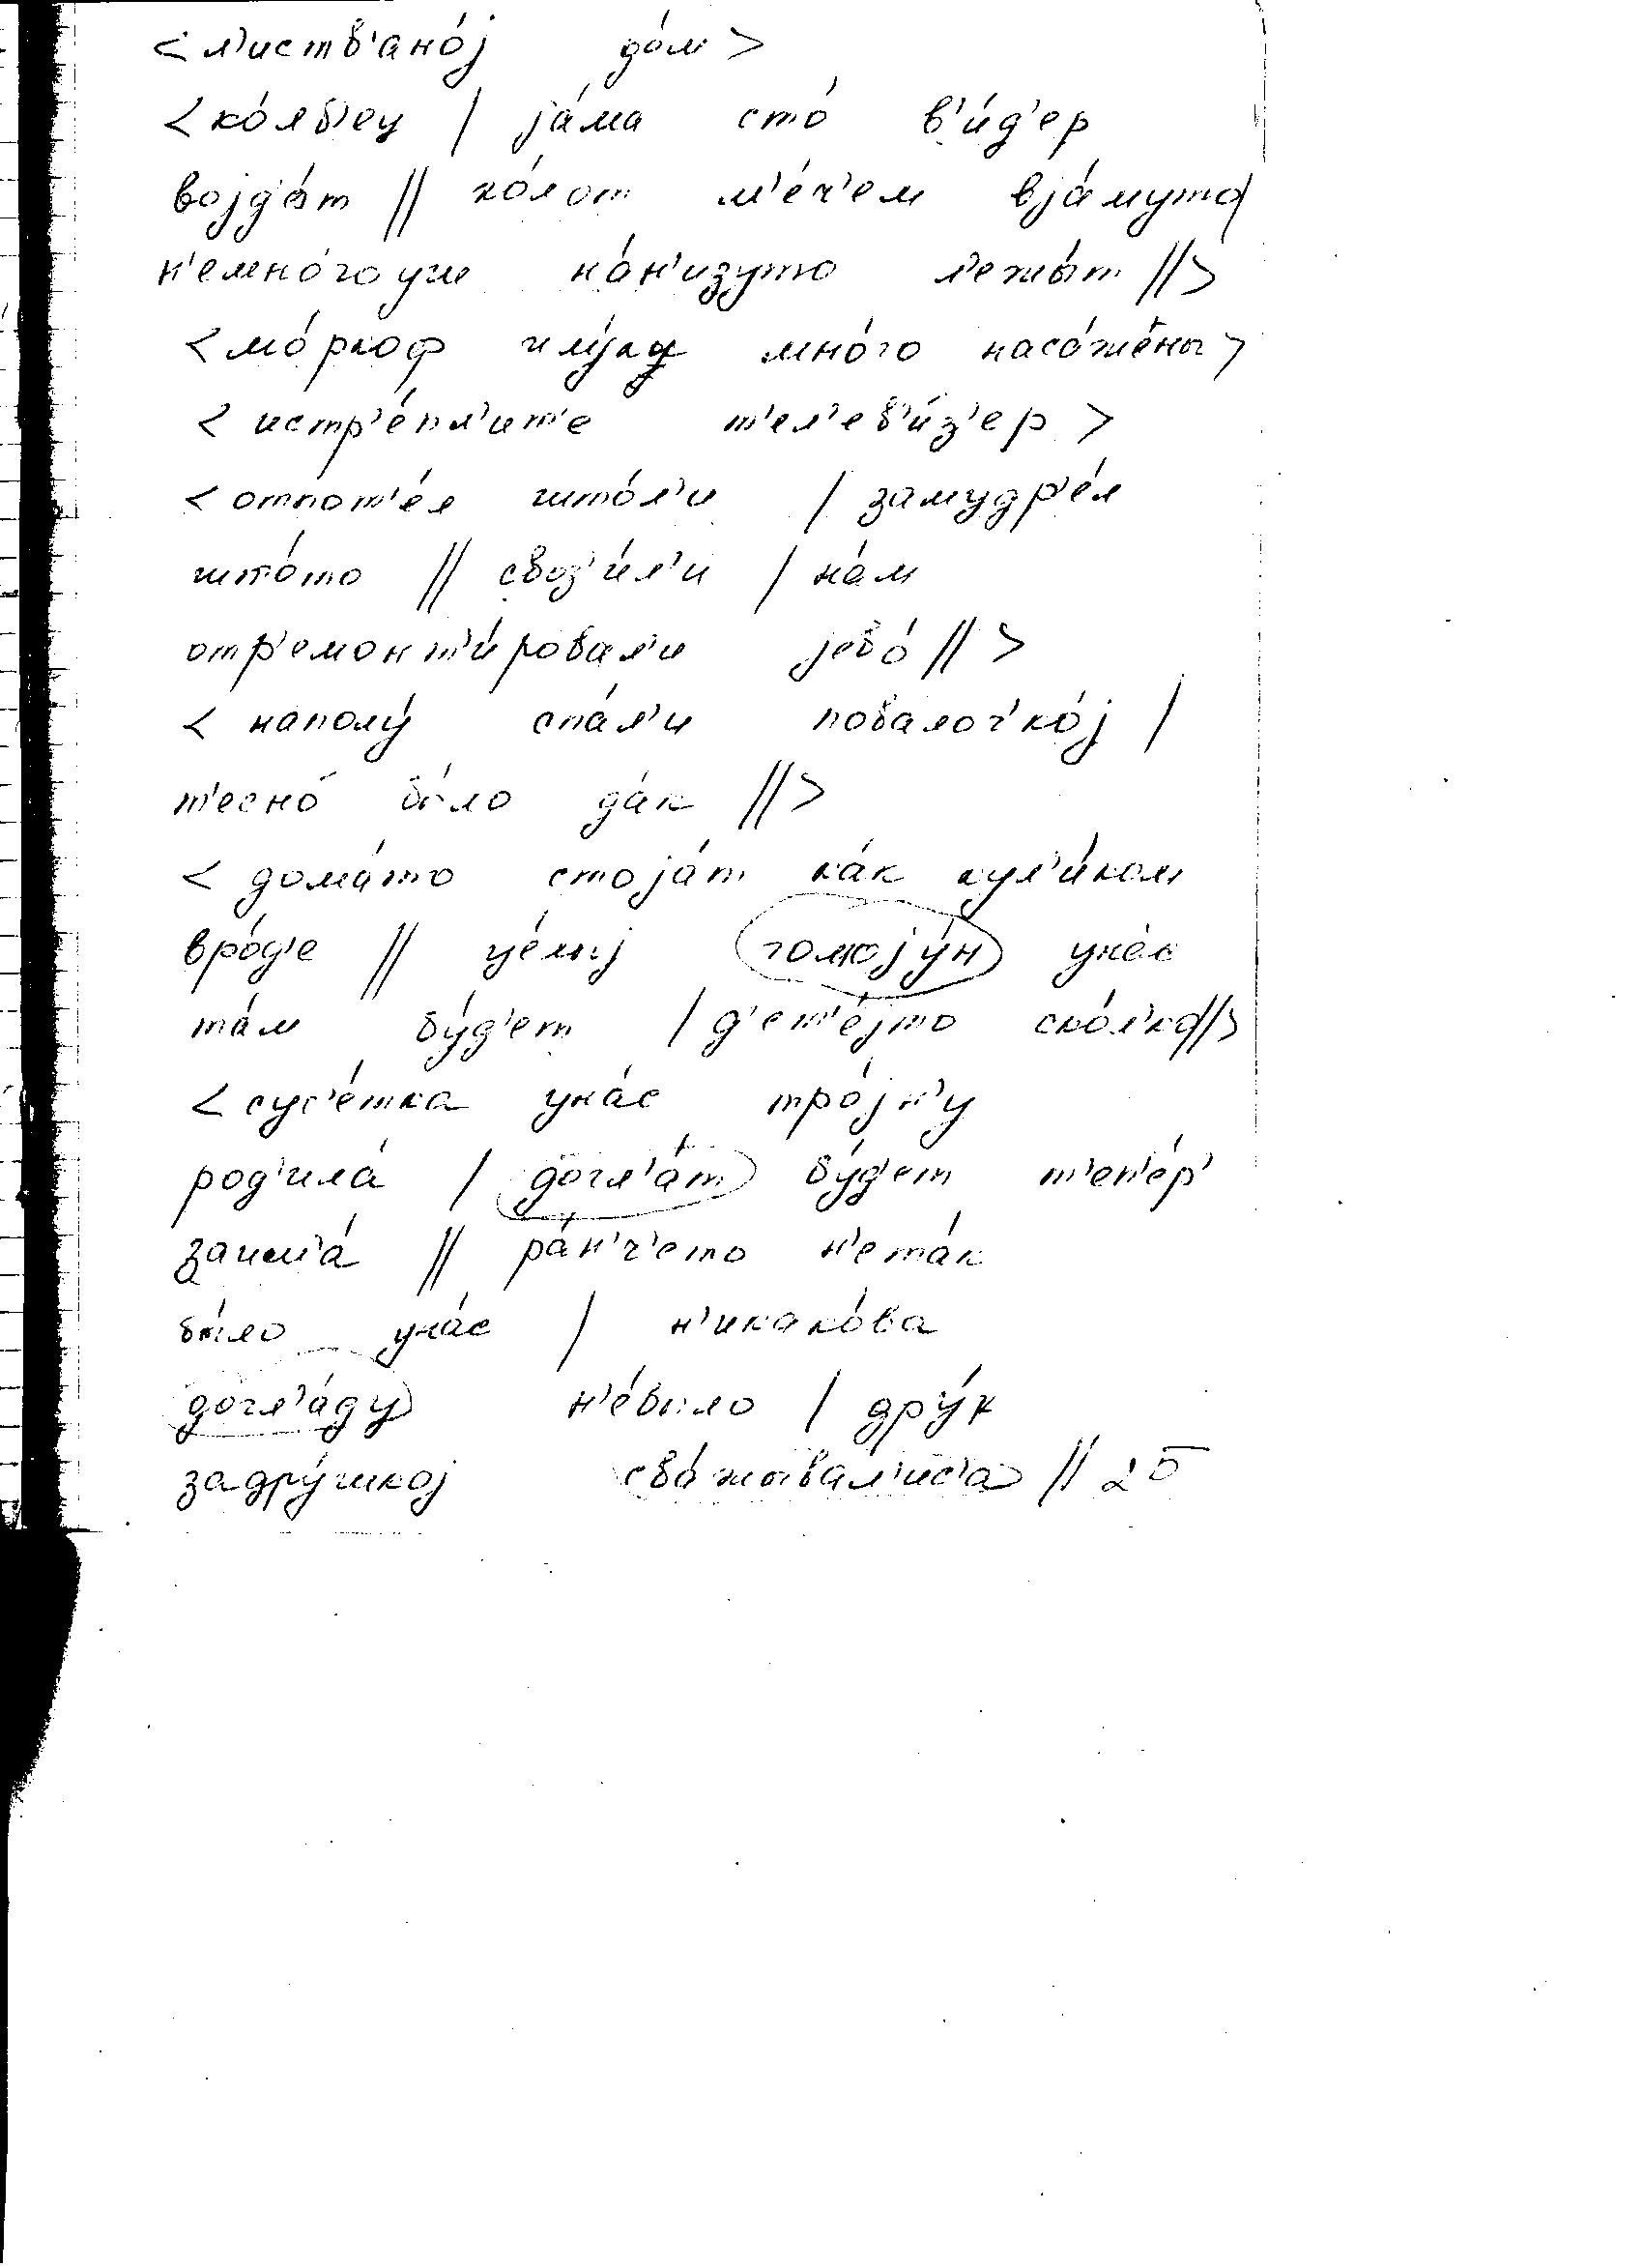 < л'иств'ано́ј до́м >
< ко́лб'ец | ја́ма сто́ в'и́д'ер
војдо́т || ко́лот м'е́ч'ем вја́муто |
н'емно́гоуш на́н'изуто л'ежы́т || >
< мо́ркоф илу́ку мно́го наса́жены >
< истр'е́пл'ит'е т'ел'ев'и́з'ер >
< отпот'е́л што́л'и | замудр'е́л
што́то || своз'и́л'и | на́м
отр'емонт'и́ровал'и јево́ || >
< наполу́ спа́л'и повалоч'ко́ј |
т'есно́ бы́ло да́к || >
< дома́то стоја́т ка́к кул'и́ком
вро́д'е || це́лыј гомоју́н уна́с
та́м бу́д'ет | д'ет'е́јто ско́л'ко || >
< сус'е́тка уна́с тро́јн'у
род'ила́ | догл'а́т бу́д'ет т'еп'е́р'
за || ра́н'ч'ето н'ета́к
бы́ло уна́с | н'икако́ва
догл'а́ду н'е́было | дру́к
задру́шкој сва́жывал'ис'а || 25